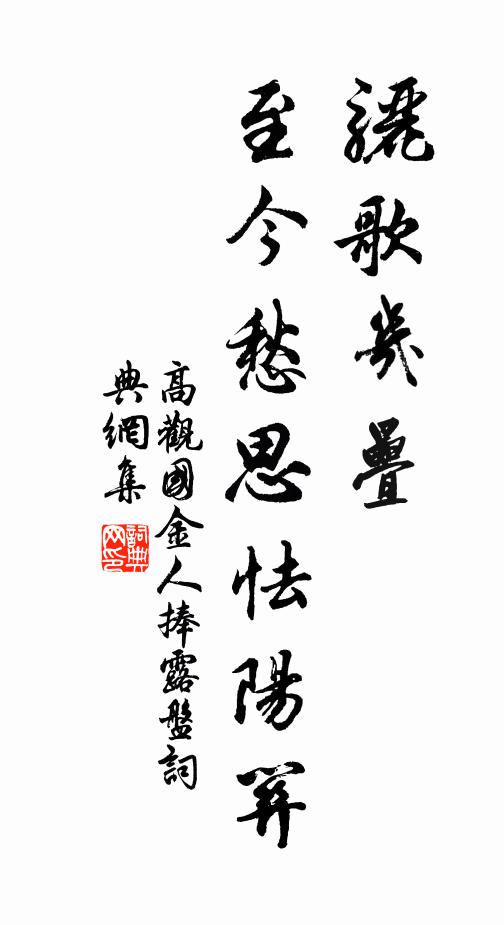 驪歌幾疊
至今愁思怯陽關
高觀國金人捧露盤詞
典網集
詞典
网印